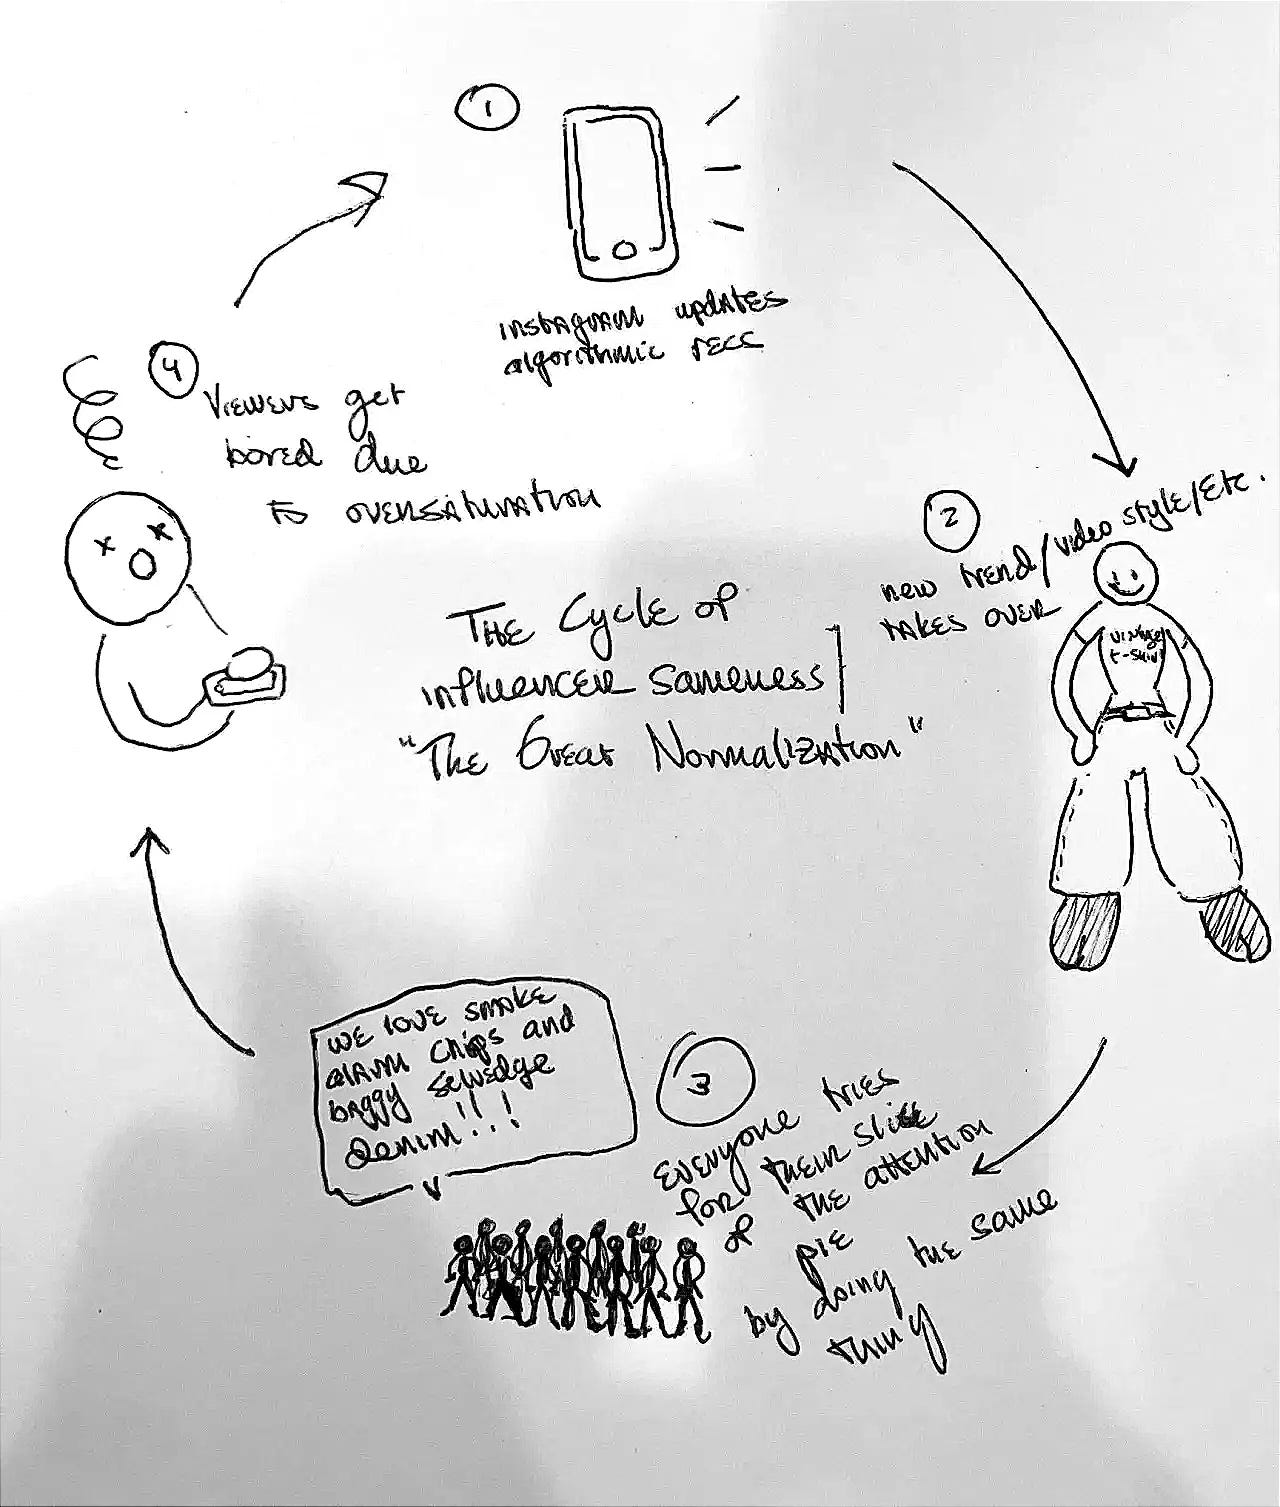 1
instagram updates
algorithmic recs
4
Viewers get
bored due
to oversaturation
2
new trend/video style/Etc.
takes over
vintage
t-shirt
The Cycle of
influencer sameness/
"The Great Normalization"
we love smoke
alarm chips and
baggy selvedge
denim!!!
3
Everyone tries
for their slice
of the attention
pie
by doing the same
thing